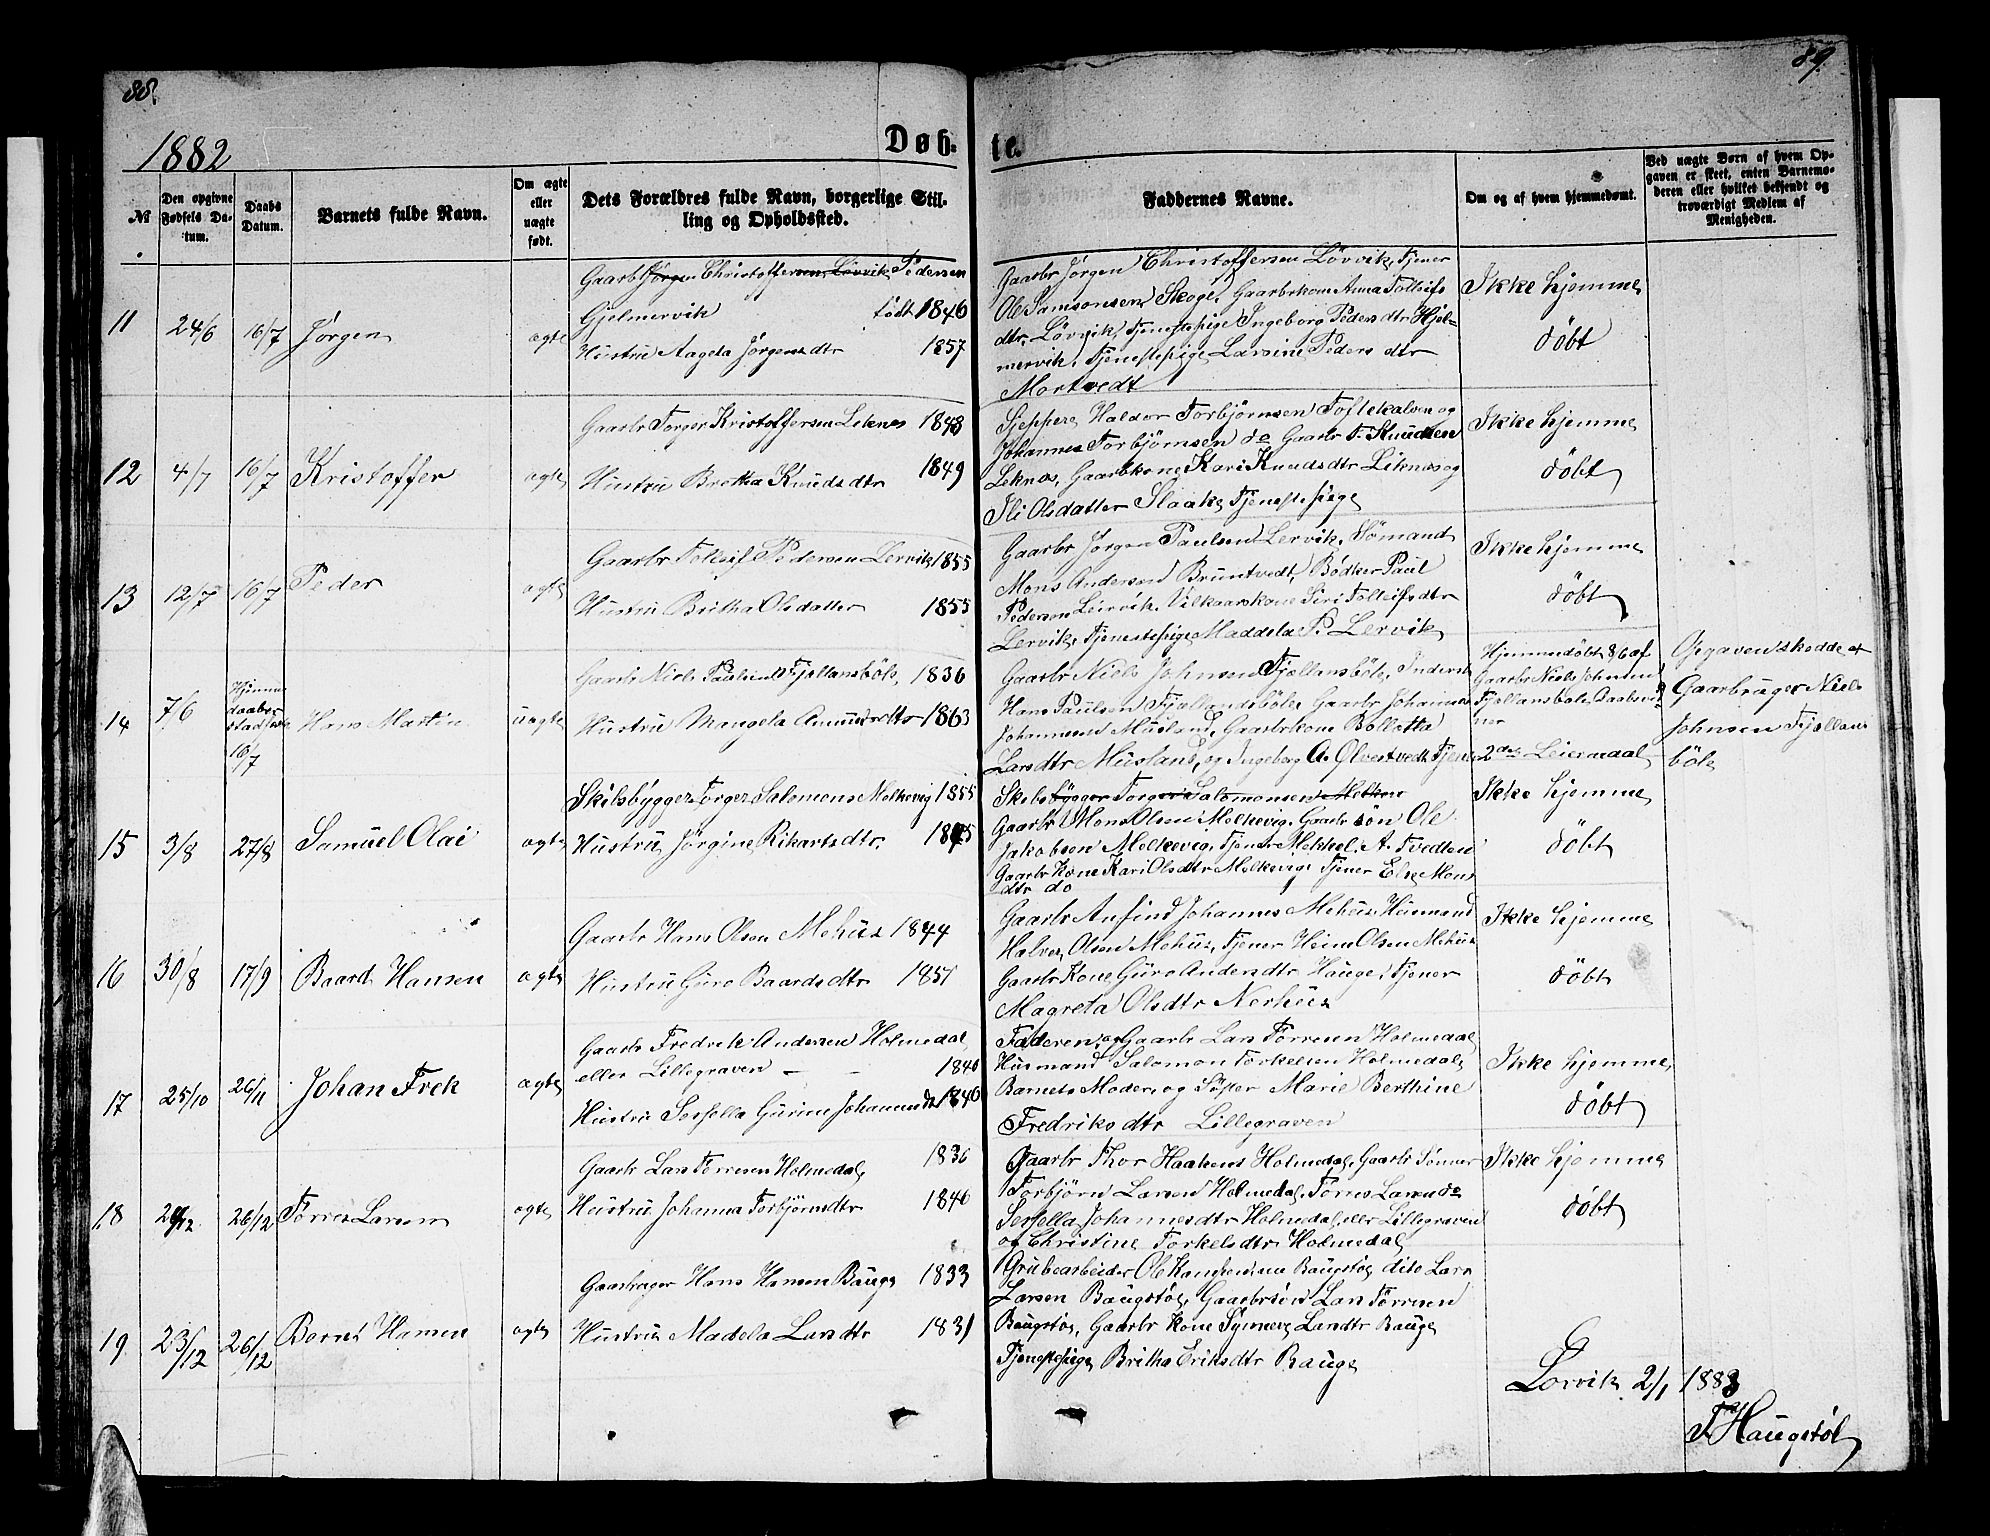 88.
89
1882
Døb-
te.
№
Den opgivne Fødsels Datum.
Daabs Datum.
Barnets fulde Navn.
Om ægte eller uægte født.
Dets Forældres fulde Navn, borgerlige Stilling og Opholdssted.
Faddernes Navne.
Om og af hvem hjemmedømt.
Ved uægte Børn af hvem Opgaven er skeet, enten Barnemoderen eller hvilket bekjendt og troværdigt Medlem af Menigheden.
11
24/6
16/7
Jørgen
ægte
Gaarbr Jørgen Christoffersen Løvvik Pedersen
Gjelmervik født 1846
Hustru Aageta Jørgensdtr 1857
Gaarbr Jørgen Christoffersen Løvvik, Tjener
Ole Samsonsen Skoge, Gaarbrkone Anna Tolleifs
dtr Løvvik, Tjenestepige Ingeborg Pedersdtr Hjel-
mervik, Tjenestepige Larsine Peders dtr
Mortvedt
Ikke hjemme
døbt
12
4/7
16/7
Kristoffer
ægte
Gaarbr Torger Kristoffersen Leknes 1848
Hustru Brotha Knudsdtr 1849
Haldor Torbjørnsen Toftekalven og
Johannes Torbjørnsen do Gaarbr T. Knudsen
Leknes, Gaarbkone Kari Knudsdtr Liknes og
Ili Olsdatter Slaake Tjenestepige
Ikke hjemme
døbt
13
12/7
16/7
Peder
ægte
Gaarbr Tolleif Pedersen Lervik 1855
Hustru Britha Olsdatter 1855
Gaarbr Jørgen Paulsen Lervik, Sømand
Mons Andersen Bruntvedt, Bødker Paul
Pedersen Leirvik, Vilkaarskone Siri Tolleifsdtr
Lervik, Tjenestepige Maddela P. Lervik
Ikke hjemme
døbt
14
7/6
Hjemme
daaben
16/7
Hans Martin
uægte
Gaarbr Niels Paulsen Fjellansbøle, 1836
Hustru Mangela 1863
Gaarbr Niels Johnsen Fjællansbøle, Inderst
Hans Paulsen Fjellandsbøle, Gaarbr Johannes
Johannesen Musland, Gaarbrkone Bollotta
Larsdtr Musland, og Ingeborg A. Ølvestvedt Tjener
Hjemmedøbt 8/6 af
Gaarbr Niels Johnsen
Fjellansbøle
2den Leiermaal
Opgaven skedde af
Gaarbruger Niels
Johnsen Fjællans
bøle
15
3/8
27/8
Samuel Olai
ægte
Skibsbygger Torger Salomons Molkevig 1855
Hustru Jørgine Rikartsdtr. 1845
Skibsbygger Torger Salomonsen
Gaarbr Mons Olsen Molkevig, Gaarbr søn Ole
Jakobsen Molkevig, Tjener Mekkel A. Tvedten
Gaarbr Kone Kari Olsdtr Molkevig, Tjener Else Mons
dtr do
Ikke hjemme
døbt
16
30/8
17/9
Baard Hansen
ægte
Gaarbr Hans Olsen Mehus 1844
Hustru Guro Baardsdtr 1851
Gaarbr Anfind Johannes Mehus, Husmand
Halvor Olsen Mehus, Tjener Heine Olsen Mehus
Gaarbr Kone Guro Andersdtr Hauge, Tjener
Magreta Olsdtr Nerhus
Ikke hjemme
døbt
17
25/10
26/11
Johan Frek
ægte
Gaarbr Fredrik Andersen Holmedal,
eller Lillegraven — — 1840
Hustru Sersella Gurine Johannesdt 1846
Faderen, og Gaarbr Lars Tørresen Holmedal
Husmand Salomon Torkelsen Holmedal,
Barnets Moder, og Søster Marie Berthine
Fredriksdtr Lillegraven
Ikke hjemme
døbt
18
26/12
Tørres Larsen
ægte
Gaarbr Lars Tørresen Holmedal 1836
Hustru Johanna Torbjørnsdtr 1840
Gaarbr Thor Haakens Holmedal, Gaarbr Sønner
Torbjørn Larsen Holmedal, Tørres Larsen do
Sersella Johannesdtr Holmedal eller Lillegraven
og Christine Torkelsdtr Holmedal
Ikke hjemme
døbt
19
23/12
26/12
Bernt Hansen
ægte
Gaarbruger Hans Hansen Bauge 1833
Hustru Madela Larsdtr 1831
Grubearbeider Ole Baugstøl, dito Lars
Larsen Baugstøl, Gaarbrsøn Lars Tørresen
Baugstøl, Gaarbr Kone Synneve Larsdtr Bauge
Tjenestepige Britha Eriksdtr Bauge
Lervik 2/1 1883
T Haugstøl